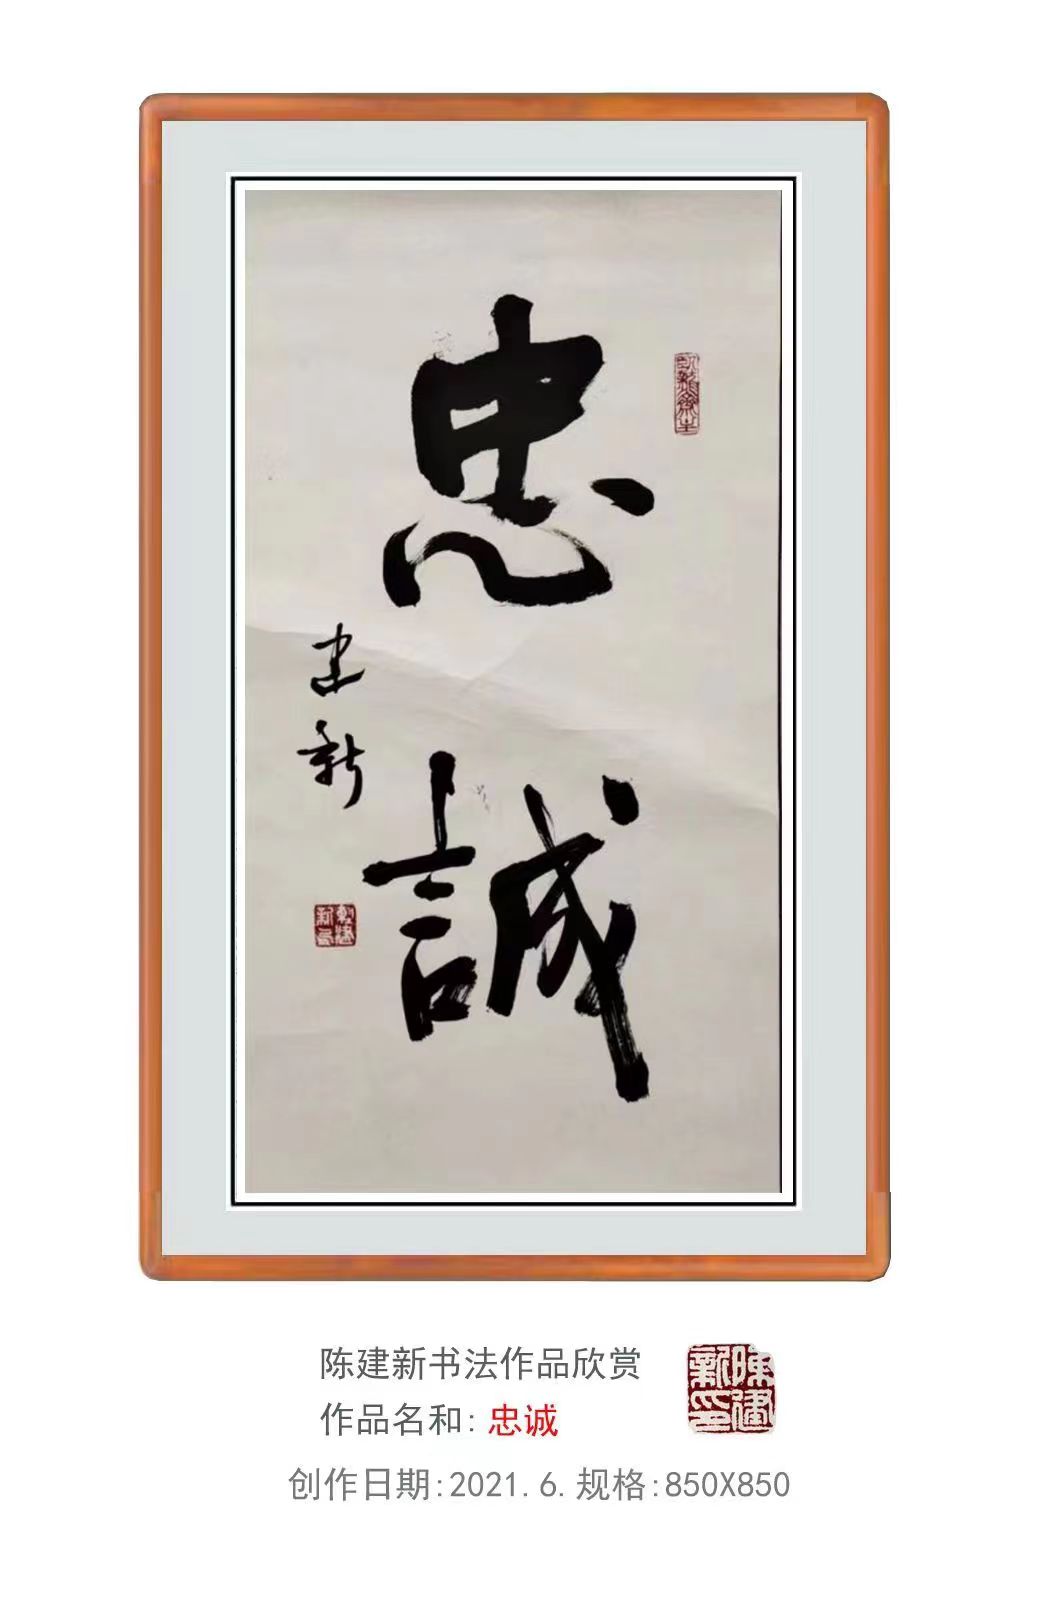 忠
誠
建新
陈建新书法作品欣赏
陳建新印
作品名和:忠诚
创作日期:2021.6.规格:850X850